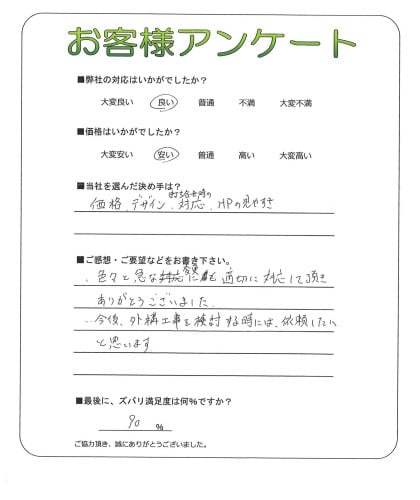 お客様アンケート
■弊社の対応はいかがでしたか？
大変良い 良い 普通 不満 大変不満
■価格はいかがでしたか？
大変安い 安い 普通 高い 大変高い
■当社を選んだ決め手は？
お話時の
価格、デザイン、対応、HPの見やすさ
■ご感想・ご要望などをお書き下さい。
変更
・色々と急な対応にも適切に対応して頂き
ありがとうございました。
・今後、外構工事を検討する時には、依頼したい
と思います
■最後に、ズバリ満足度は何%ですか？
90 %
ご協力頂き、誠にありがとうございました。